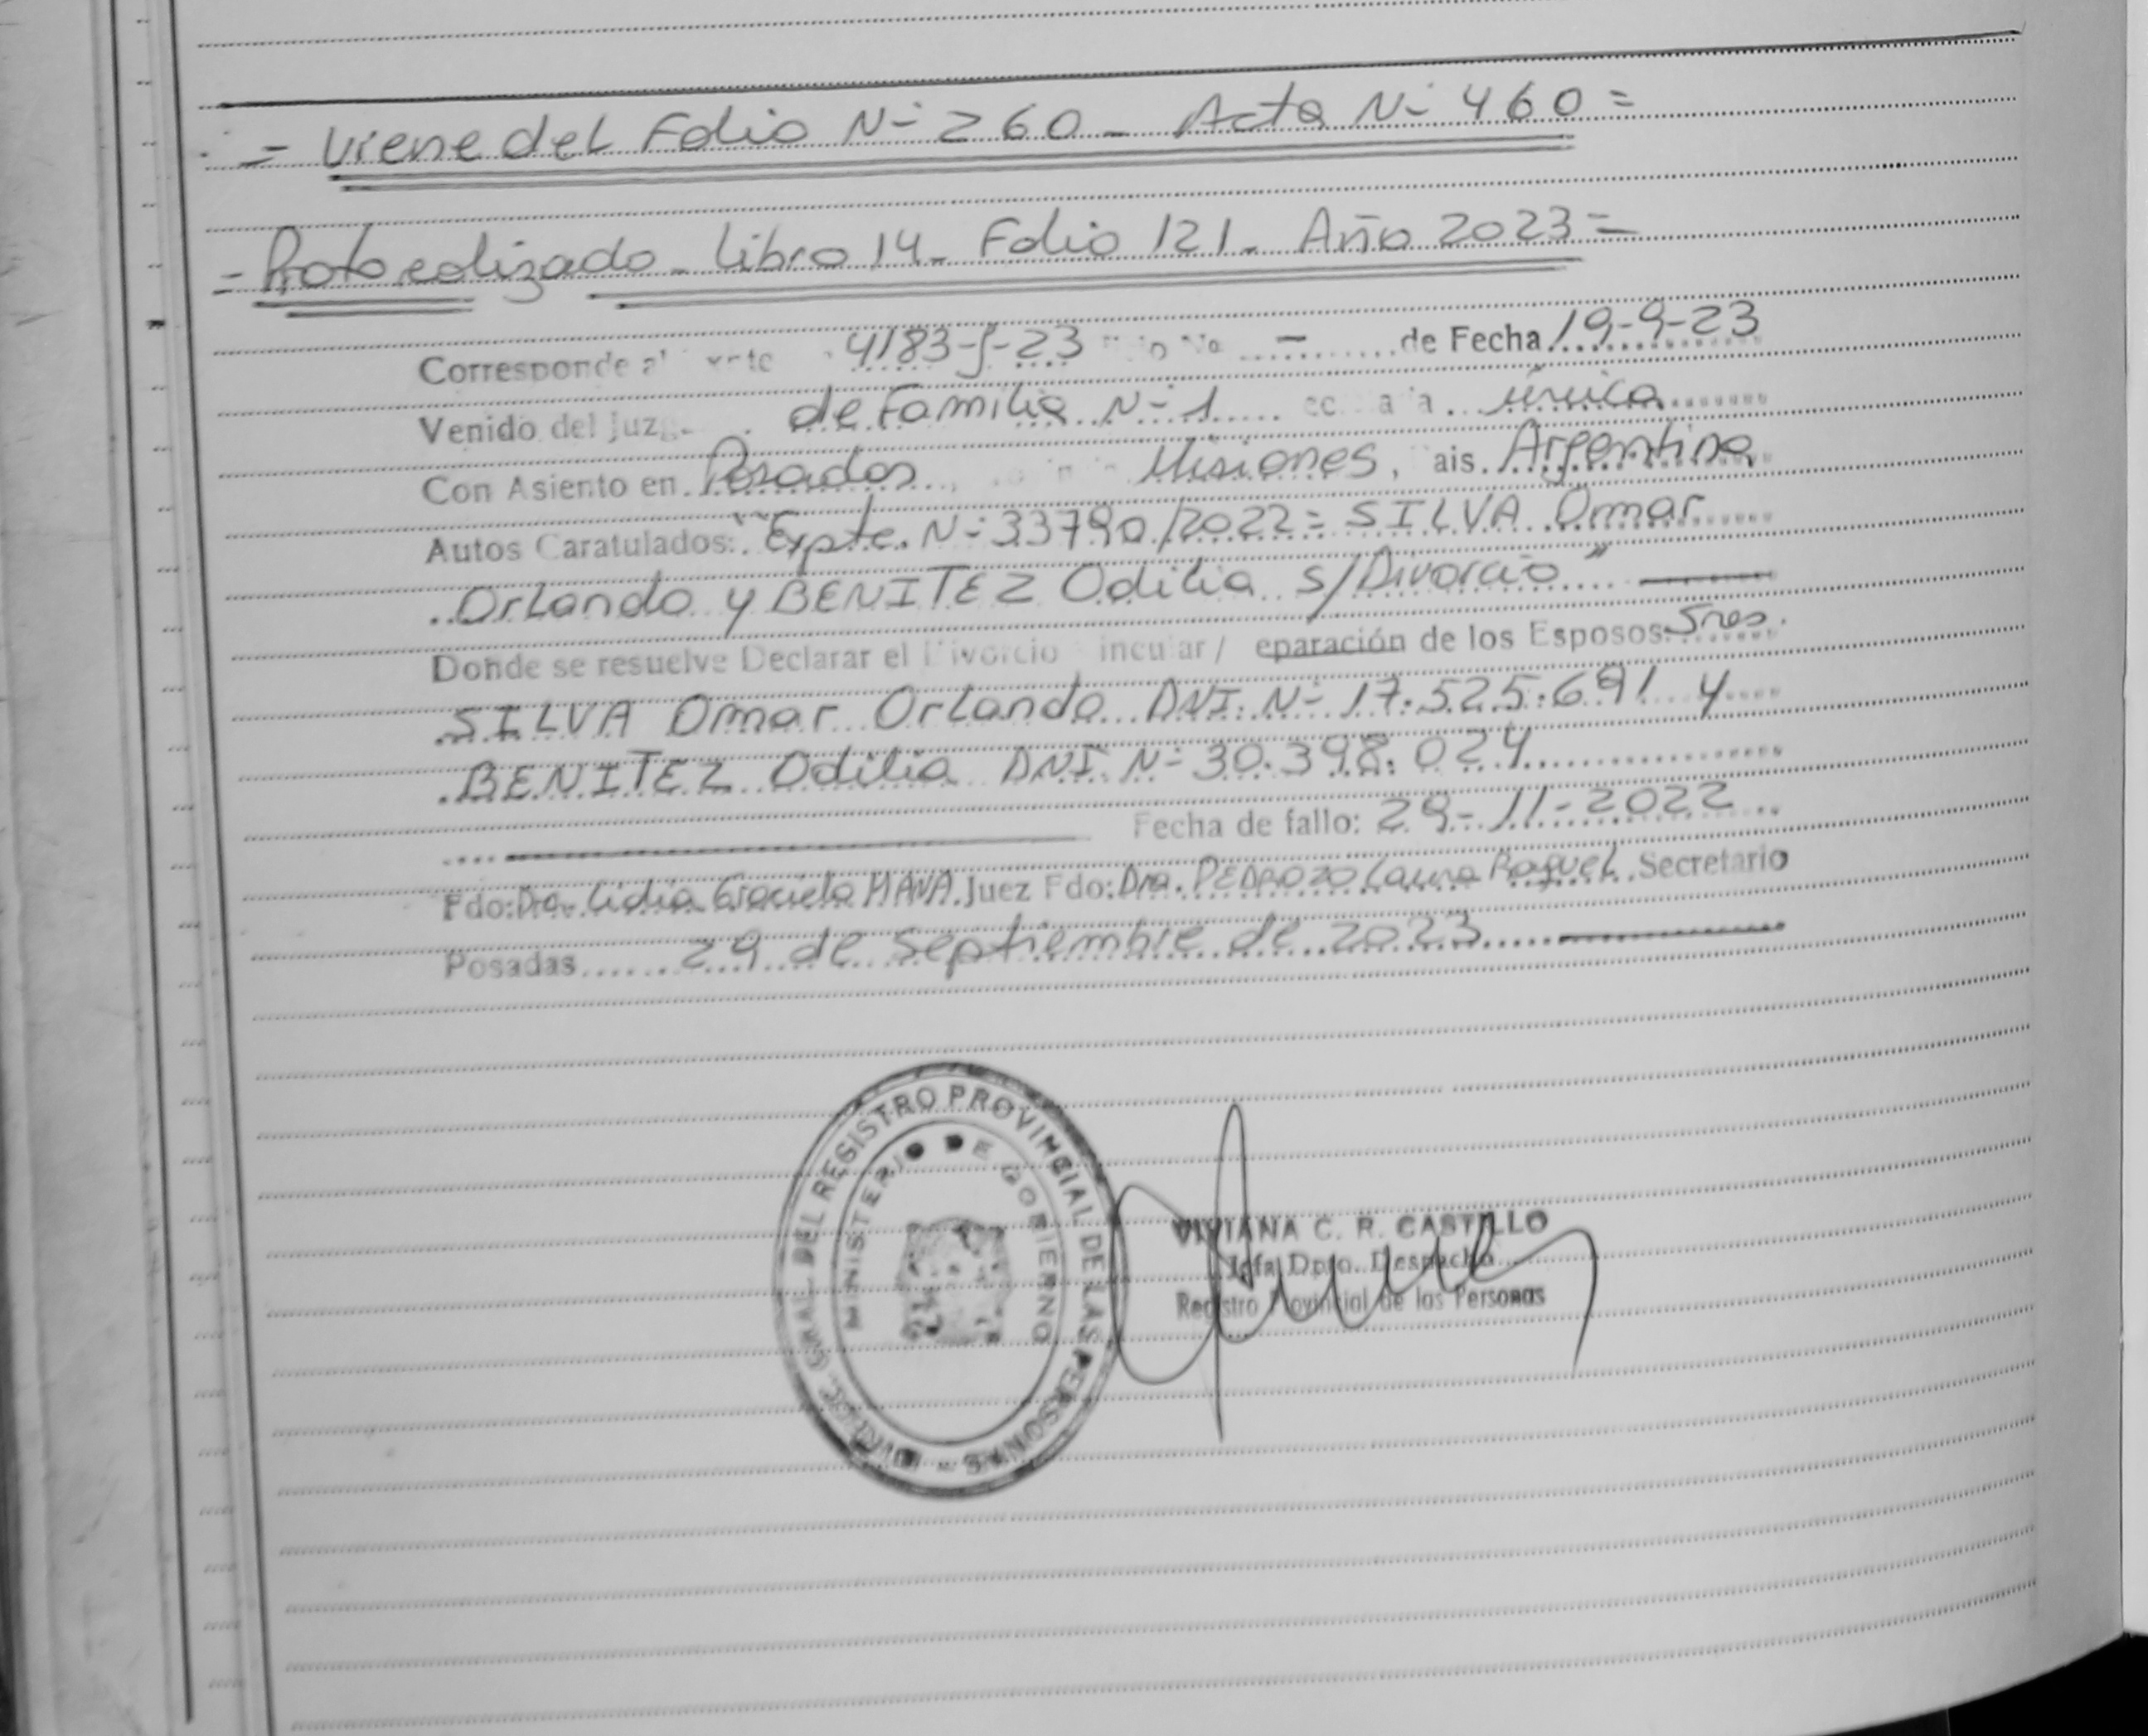 = Viene del Folio N- 260 - Acta N- 460 =
= Protocolizado - Libro 14 - Folio 121 - Año 2023 =
Corresponde al 4183-J-23 - de Fecha 19-9-23
Venido del Juzg de Familia N-1 única
Con Asiento en Posadas, Misiones, ais. Argentina
Autos Caratulados: "Expte. N- 33790/2022 = SILVA Omar
Orlando y BENITEZ Odilia s/Divorcio"
Donde se resuelve Declarar el Divorcio incular / eparación de los Esposos: Sres.
SILVA Omar Orlando DNI. N- 17.525.691 y
BENITEZ Odilia DNI. N- 30.398.024
Fecha de fallo: 29-11-2022
Fdo: Dra. Lidia Graciela MAVA. Juez Fdo: Dra. PEDROZO Laura Raquel. Secretario
Posadas 29 de septiembre de 2023
DIREC. GRAL. DEL REGISTRO PROVINCIAL DE LAS PERSONAS -
MINISTERIO DE GOBIERNO
VIVIANA C. R. CASTILLO
Jefa Dpto. Despacho
Registro Provincial de las Personas